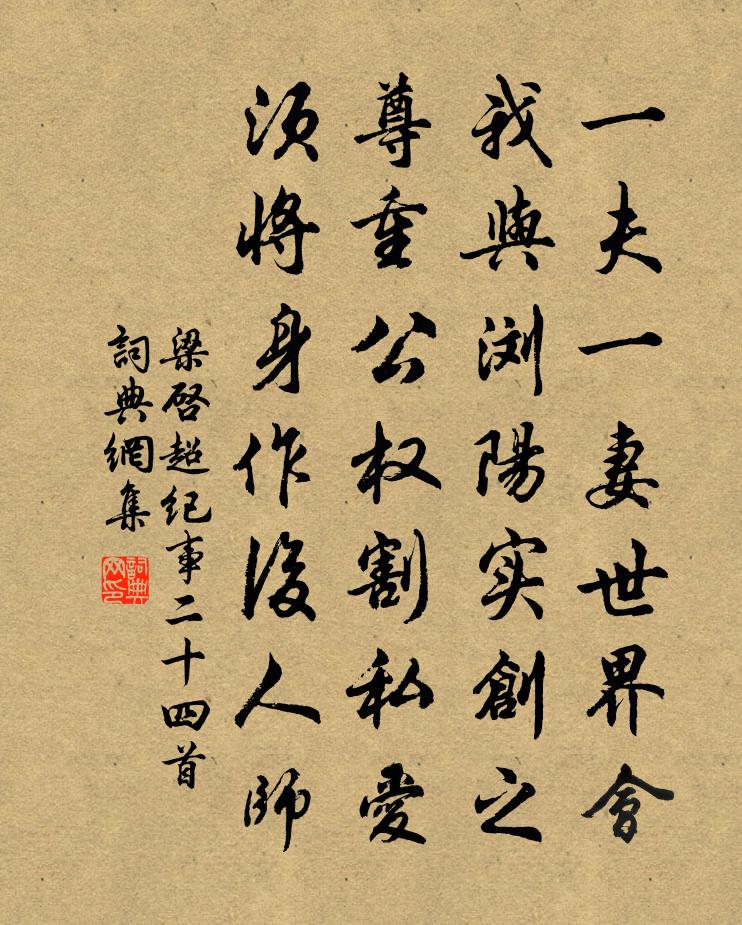 一夫一妻世界會
我與浏陽实創之
尊重公权割私愛
須將身作後人師
梁啓超纪事二十四首
詞典網集
詞典
网印